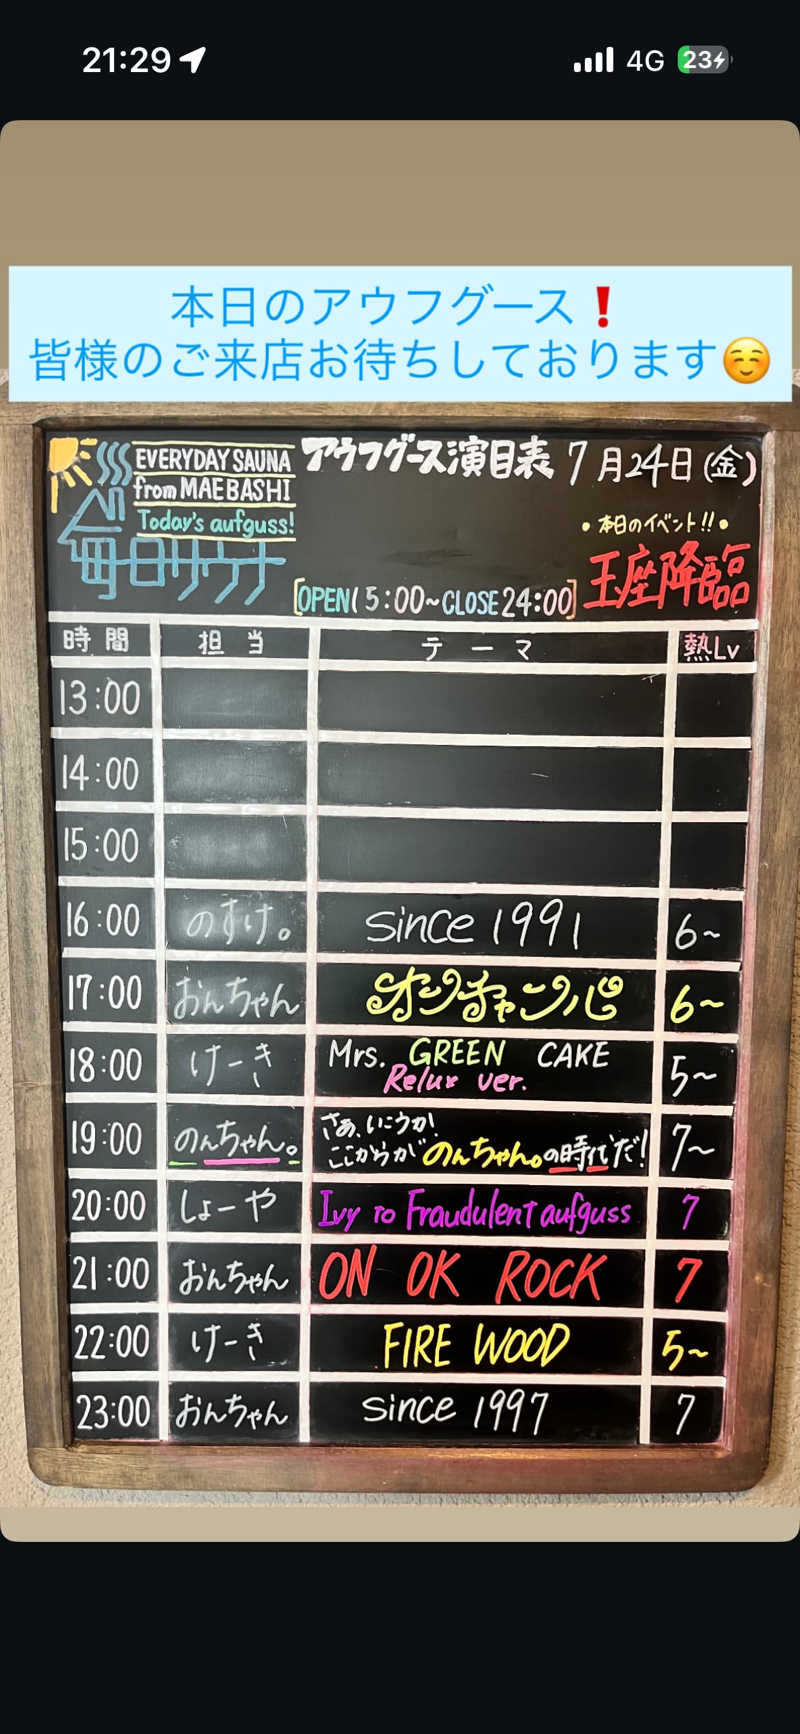 21:29
4G
23
本日のアウフグース❗
皆様のご来店お待ちしております☺️
EVERYDAY SAUNA
from MAEBASHI
Today's aufguss!
毎日サウナ
アウフグース演目表 7月24日(金)
•本日のイベント!!•
王座降臨
[OPEN15:00~CLOSE24:00]
時間 担当 テーマ 熱Lv
13:00
14:00
15:00
16:00 のすけ。 since 1991 6~
17:00 おんちゃん オンチャンバ 6~
18:00 けーき Mrs. GREEN CAKE 5~
Relux ver.
19:00 のんちゃん。 さあ、いこうか 7~
ここからが のんちゃん。の時代だ!
20:00 しょーや Ivy to Fraudulent aufguss 7
21:00 おんちゃん ON OK ROCK 7
22:00 けーき FIRE WOOD 5~
23:00 おんちゃん since 1997 7